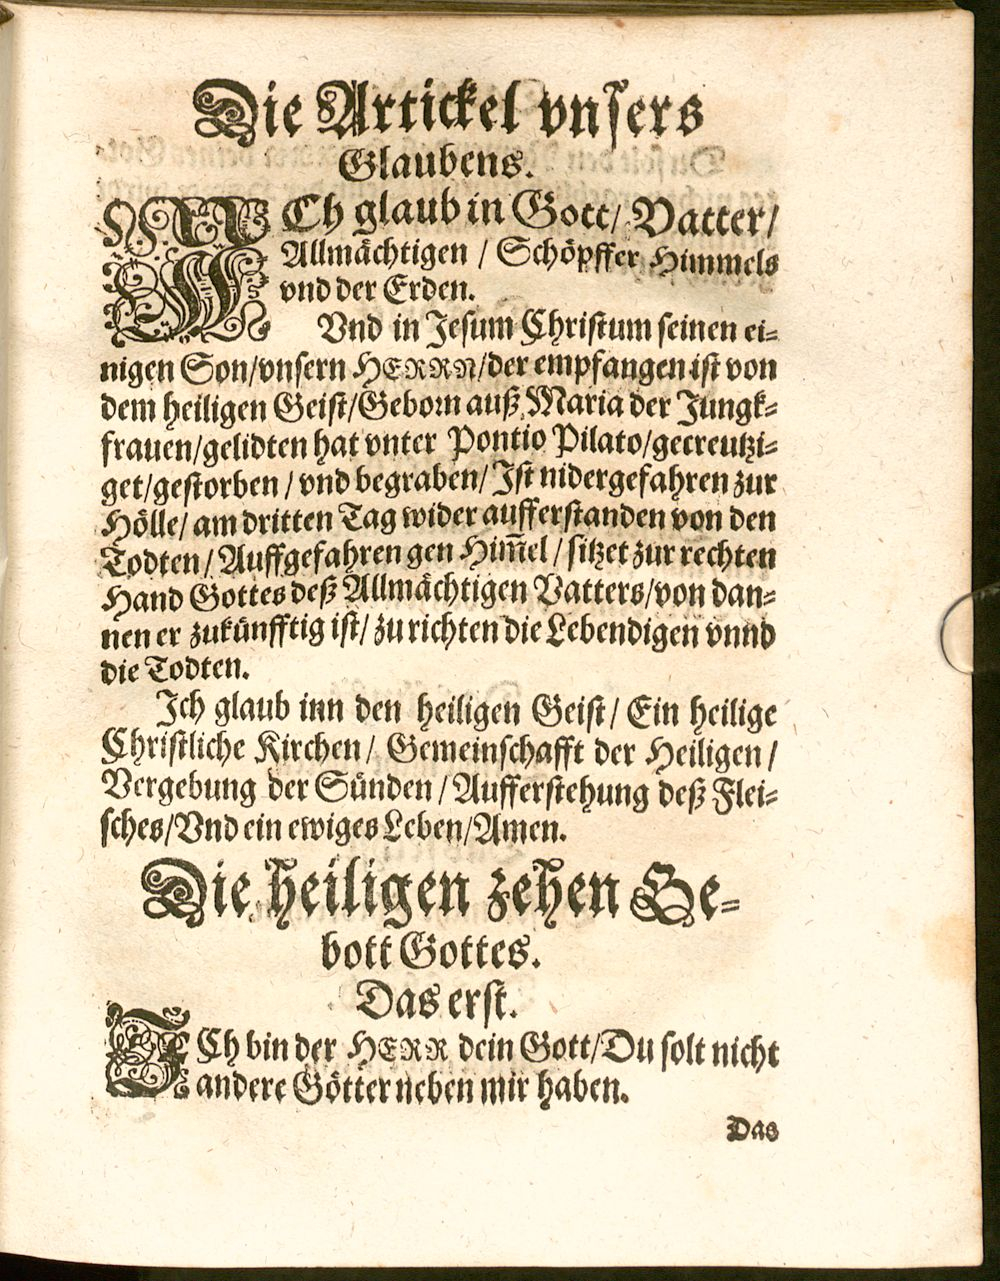 Die Artickel vnſers
Glaubens.
ICh glaub in Gott/ Vatter/
Allmächtigen / Schöpffer Himmels
vnd der Erden.
Vnd in Jeſum Chriſtum ſeinen ei⸗
nigen Son/vnſern HERRN/der empfangen iſt von
dem heiligen Geiſt/Geborn auß Maria der Jungk⸗
frauen/gelidten hat vnter Pontio Pilato/gecreutzi⸗
get/geſtorben / vnd begraben/ Iſt nidergefahren zur
Hölle/ am dritten Tag wider aufferſtanden von den
Todten/ Auffgefahren gen Him̃el / ſitzet zur rechten
Hand Gottes deß Allmächtigen Vatters/von dan⸗
nen er zukünfftig iſt/ zu richten die Lebendigen vnnd
die Todten.
Ich glaub inn den heiligen Geiſt/ Ein heilige
Chriſtliche Kirchen/ Gemeinſchafft der Heiligen/
Vergebung der Sünden / Aufferſtehung deß Flei⸗
ſches/Vnd ein ewiges Leben/Amen.
Die heiligen zehen Ge⸗
bott Gottes.
Das erſt.
ICh bin der HERR dein Gott/Du ſolt nicht
andere Götter neben mir haben.
Das